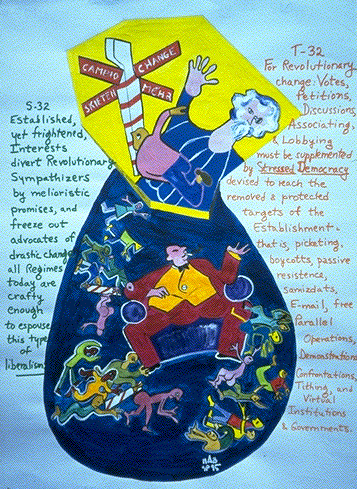 CAMBIO
CHANGE
SKIFTEN
S-32
Established,
yet frightened,
Interests
divert Revolutionary
Sympathizers
by melioristic
promises, and
freeze out
advocates of
drastic change,
all Regimes
today are
crafty
enough
to espouse
this type
of
liberalism
T-32
For Revolutionary
change: Votes,
Petitions,
Discussions,
Associating,
& Lobbying
must be supplemented
by Stressed Democracy
devised to reach the
removed & protected
targets of the
Establishment.
that is, picketing.
boycotts, passive
resistence,
Samizdats,
E-mail, free
Parallel
Operations,
Demonstrations
Confrontations,
Tithing, and
Virtual
Institutions
& Governments.